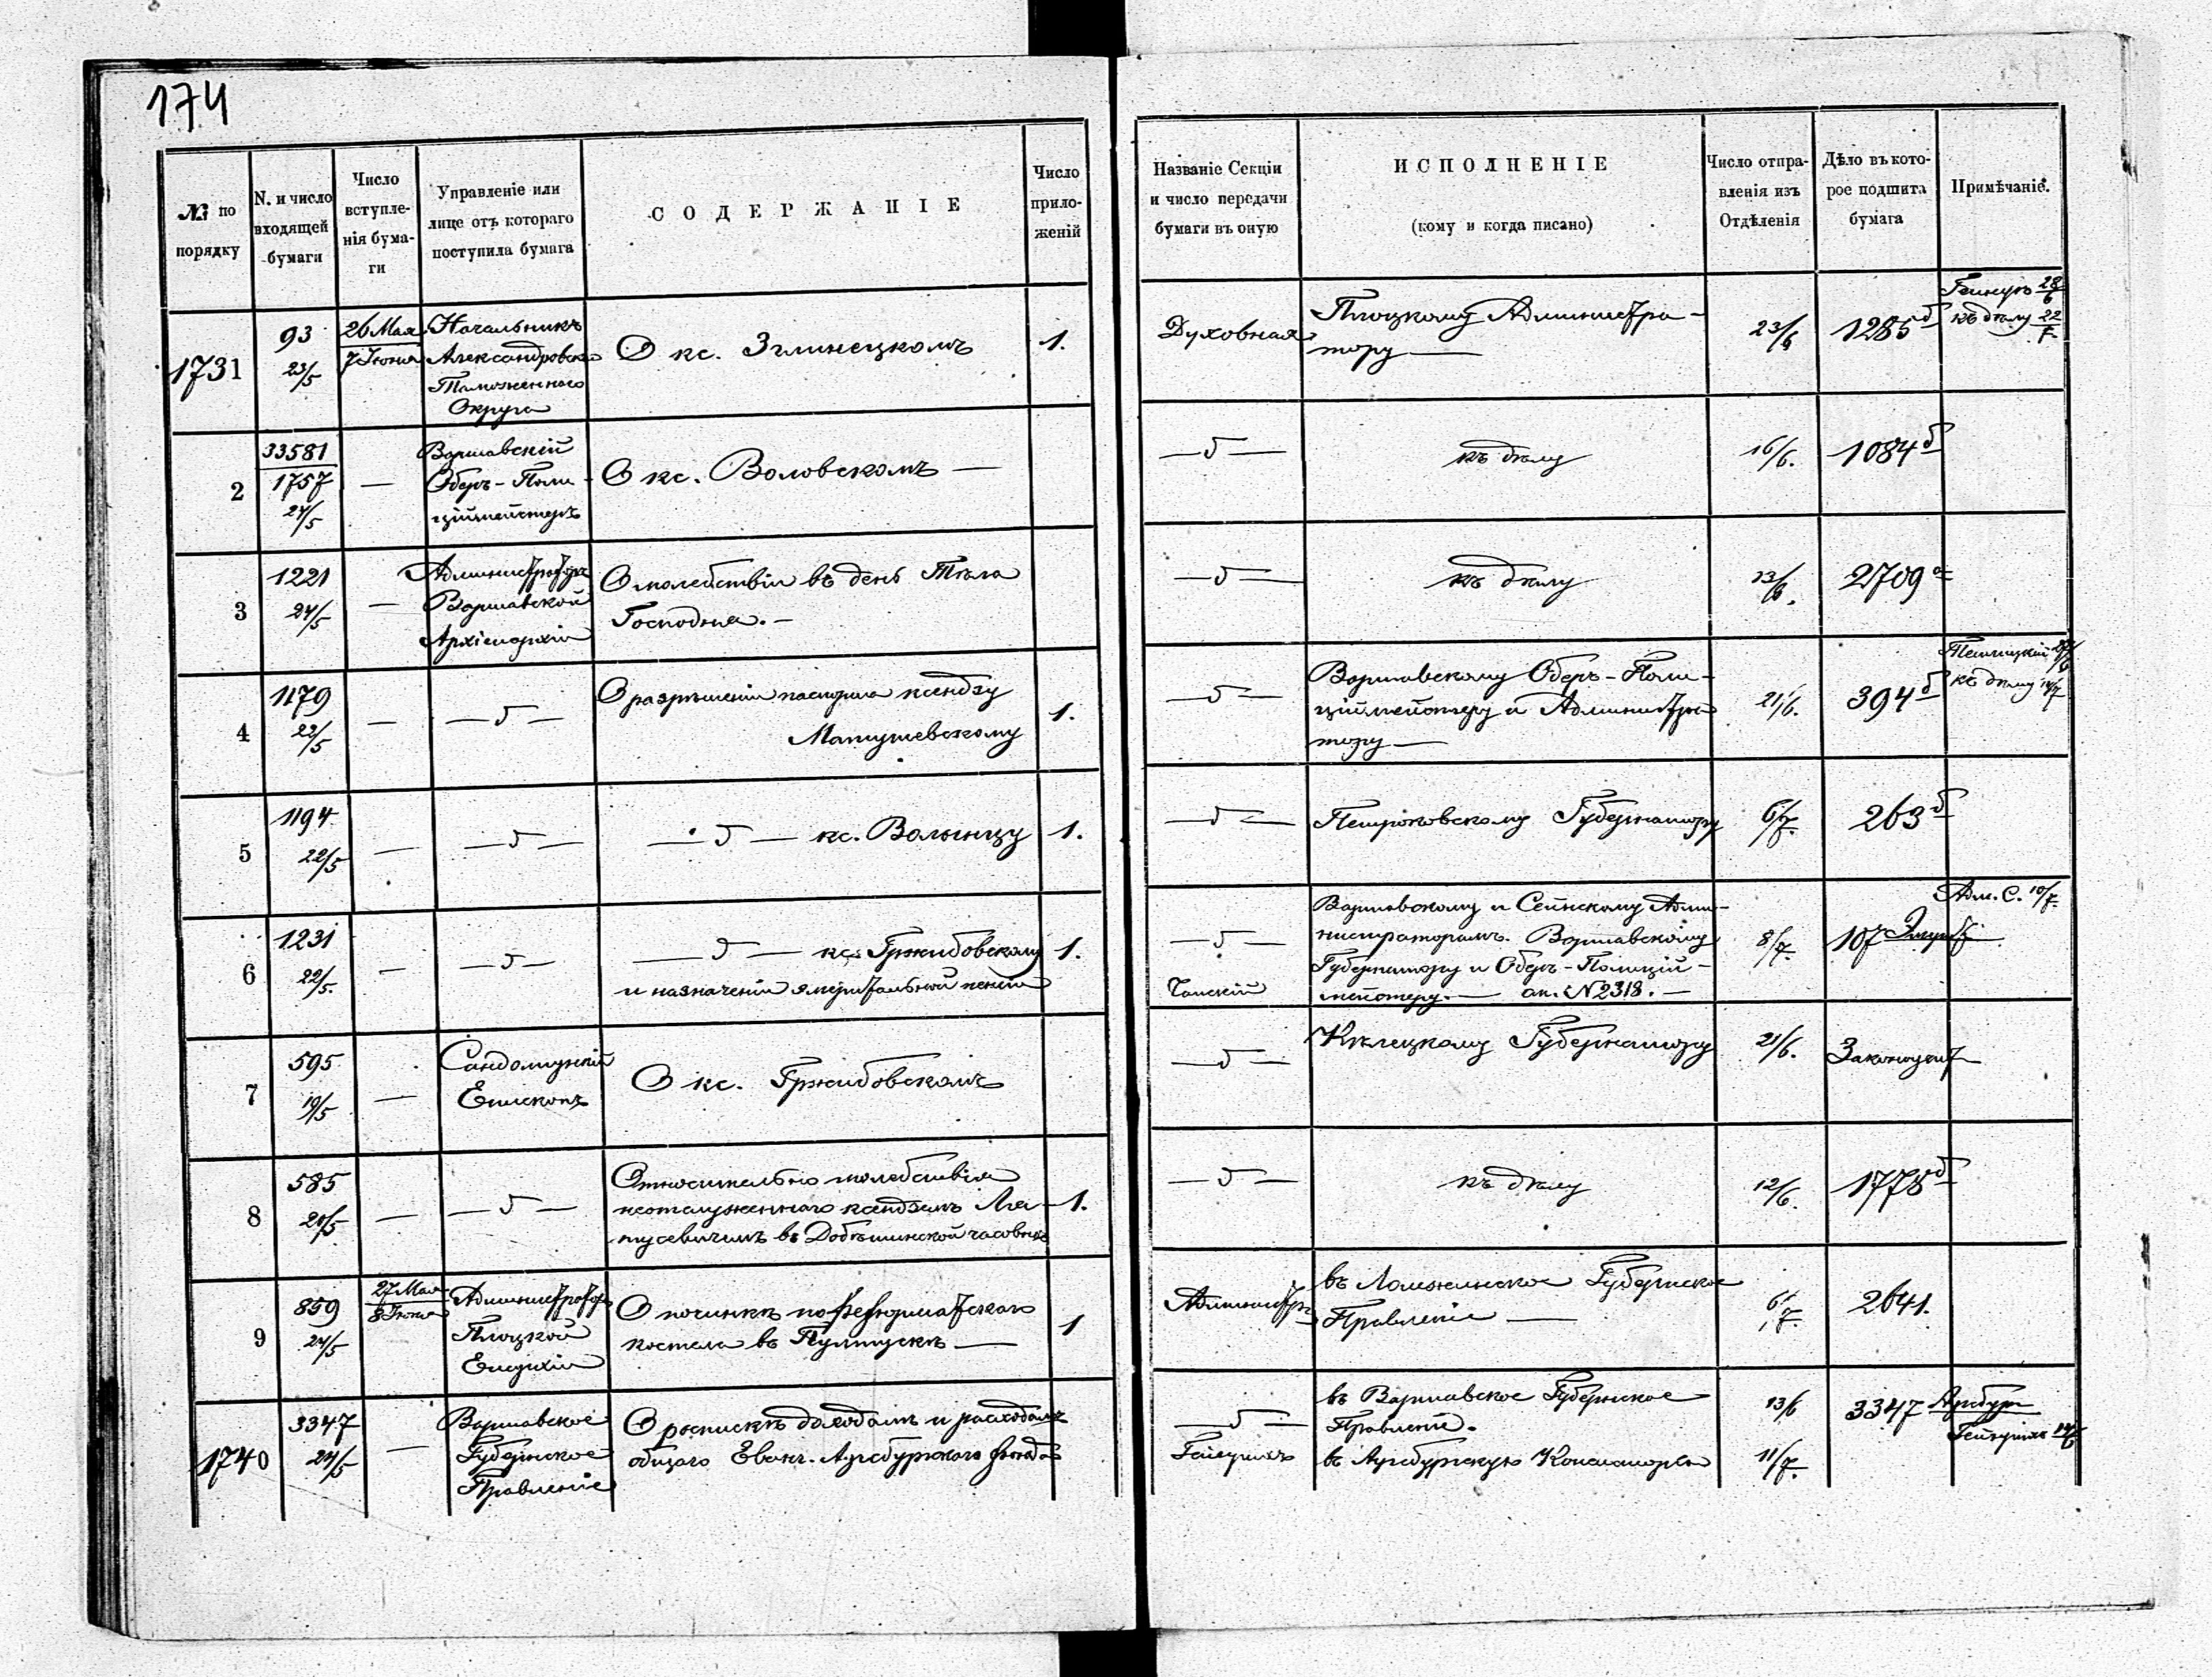 174
№ по порядку
N. и число входящей бумаги
Число вступленія бумаги
Управленіе или лице отъ котораго поступила бумага
СОДЕРЖАНІЕ
Число приложеній
Названіе Секціи и число передачи бумаги въ оную
ИСПОЛНЕНІЕ
(кому и когда писано)
Число отправленія изъ Отдѣленія
Дѣло въ которое подшита бумага
Примѣчаніе.
1731
93
23/5
26 Мая
7 Іюня
Начальникъ
Александровск
Таможеннаго
Округа
О кс. Злинецкомъ
1.
Духовная
Плоцкому Администра-
тору —
23/6
1285 б
28/6
къ дѣлу 22/7
2
33581
1757
24/5
—
Варшавскій
Оберъ-Поли-
ціймейстеръ
О кс. Воловскомъ —
— " —
къ дѣлу
16/6.
1084 б
3
1221
24/5
—
Администраторъ
Варшавской
Архіепархіи
О молебствіи въ день Тѣла
Господня. —
— " —
къ дѣлу
13/6.
2709 а
4
1179
22/5
—
— " —
О разрѣшеніи паспорта ксендзу
Матушевскому
1.
— " —
Варшавскому Оберъ-Поли-
ціймейстеру и Администра
тору —
21/6.
394 б
къ дѣлу
5
1194
22/5
—
— " —
— " — кс. Волынцу
1.
— " —
Петроковскому Губернатору
6/7.
263 б
6
1231
22/5.
—
— " —
— " — кс. Гржибовскому
и назначеніи эмеритальной пенсіи
1.
— " —
Варшавскому и Сейнскому Адми-
нистраторамъ. Варшавскому
Губернатору и Оберъ-Полицій-
мейстеру. — оп. № 2318. —
8/7.
107
Адм. С. 10/7.
7
595
19/5
—
Сандомирскій
Епископъ
О кс. Гржибовскомъ
— " —
Кѣлецкому Губернатору
21/6.
8
585
20/5
—
— " —
Относительно молебствія
неотслуженнаго ксендзомъ Ма-
тусевичемъ въ Добѣшинской часовнѣ
1.
— " —
къ дѣлу
12/6.
1778 б
9
859
24/5
27 Мая
8 Іюня
Администраторъ
Плоцкой
Епархіи
О починкѣ пореформатскаго
костела въ Пултускѣ —
1
Администр
въ Ломжинское Губернское
Правленіе —
6/7.
2641.
1740
3347
24/5
—
Варшавское
Губернское
Правленіе
О роспискѣ доходамъ и расходамъ
общаго Еванг. Аугсбурскаго фонда
— " —
въ Варшавское Губернское
Правленіе.
въ Аугсбургскую Консисторію
13/6
11/7.
3347